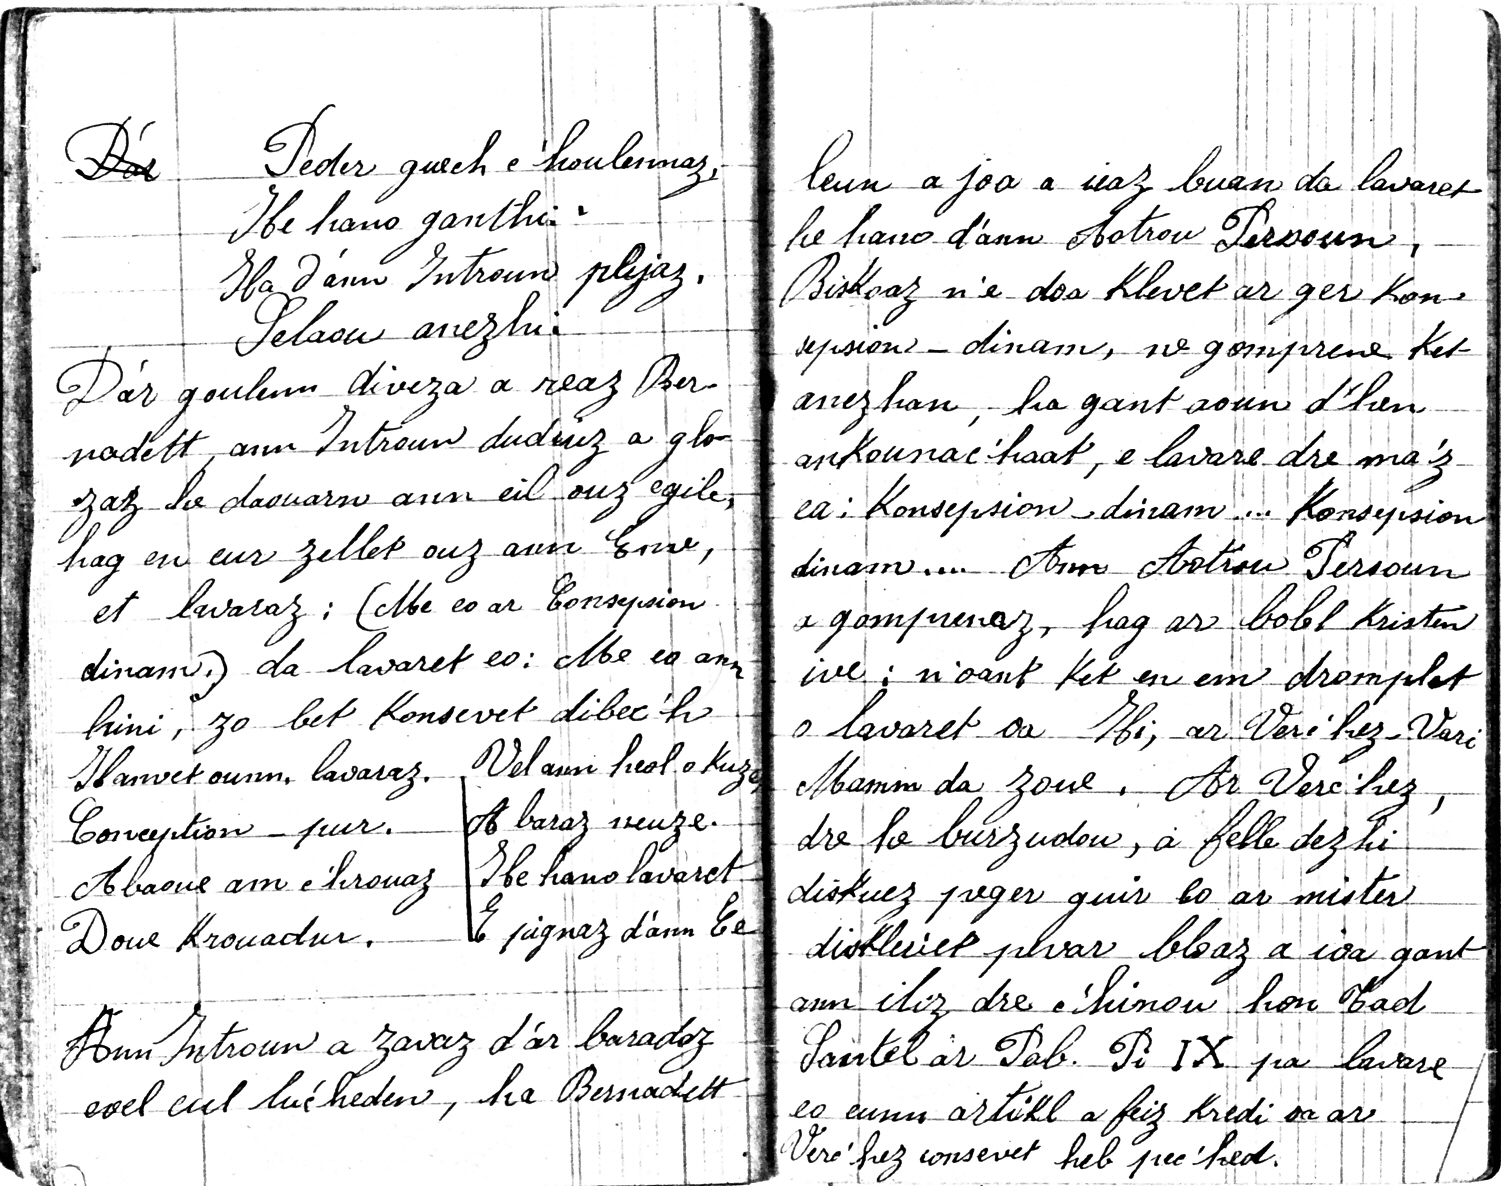 Peder guech e c'houlennaz,
He hano ganthi:
Ha d'ann Introun plijaz,
Selaou anezhi:
D'ar goulenn diveza a reaz Ber-
nadett, ann Introun duduiz a glo-
zaz he daouarn ann eil ouz egile,
hag en eur zellet ouz ann Env,
et lavaraz: (Me eo ar Consepsion
dinam.) da lavaret eo: Me eo ann
hini, zo bet Konsevet dibec'h
Hanvet ounn, lavaraz.
Conception - pur.
Abaoue am c'hrouaz
Doue Krouadur.
Vel ann heol o Kuza,
A baraz neuze.
He hano lavaret
E pignaz d'ann Ee
Ann Introun a zavaz d'ar baradoz
evel eul luc'heden, ha Bernadett
leun a joa a ieaz buan da lavaret
he hano d'ann Aotrou Persoun,
Biskoaz n'e doa Klevet ar ger Kon-
sepsion - dinam, ne gomprene Ket
anezhan, ha gant aoun d'hen
ankounac'haat, e lavare dre ma'z
ea: Konsepsion dinam ... Konsepsion
dinam.... Ann Aotrou Persoun
a gomprenaz, hag ar bobl Kristen
ive; n'oant Ket en em dromplet
o lavaret oa Hi, ar Verc'hez-Vari
Mamm da Zoue. Ar Verc'hez,
dre he burzudou, a felle dezhi
diskuez peger guir eo ar mister
diskleriet pevar bloaz a ioa gant
ann iliz dre c'hinou hon Tad
Santel ar Pab. Pi IX pa lavare
eo eunn artikl a feiz Kredi oa ar
Verc'hez consevet heb pec'hed.